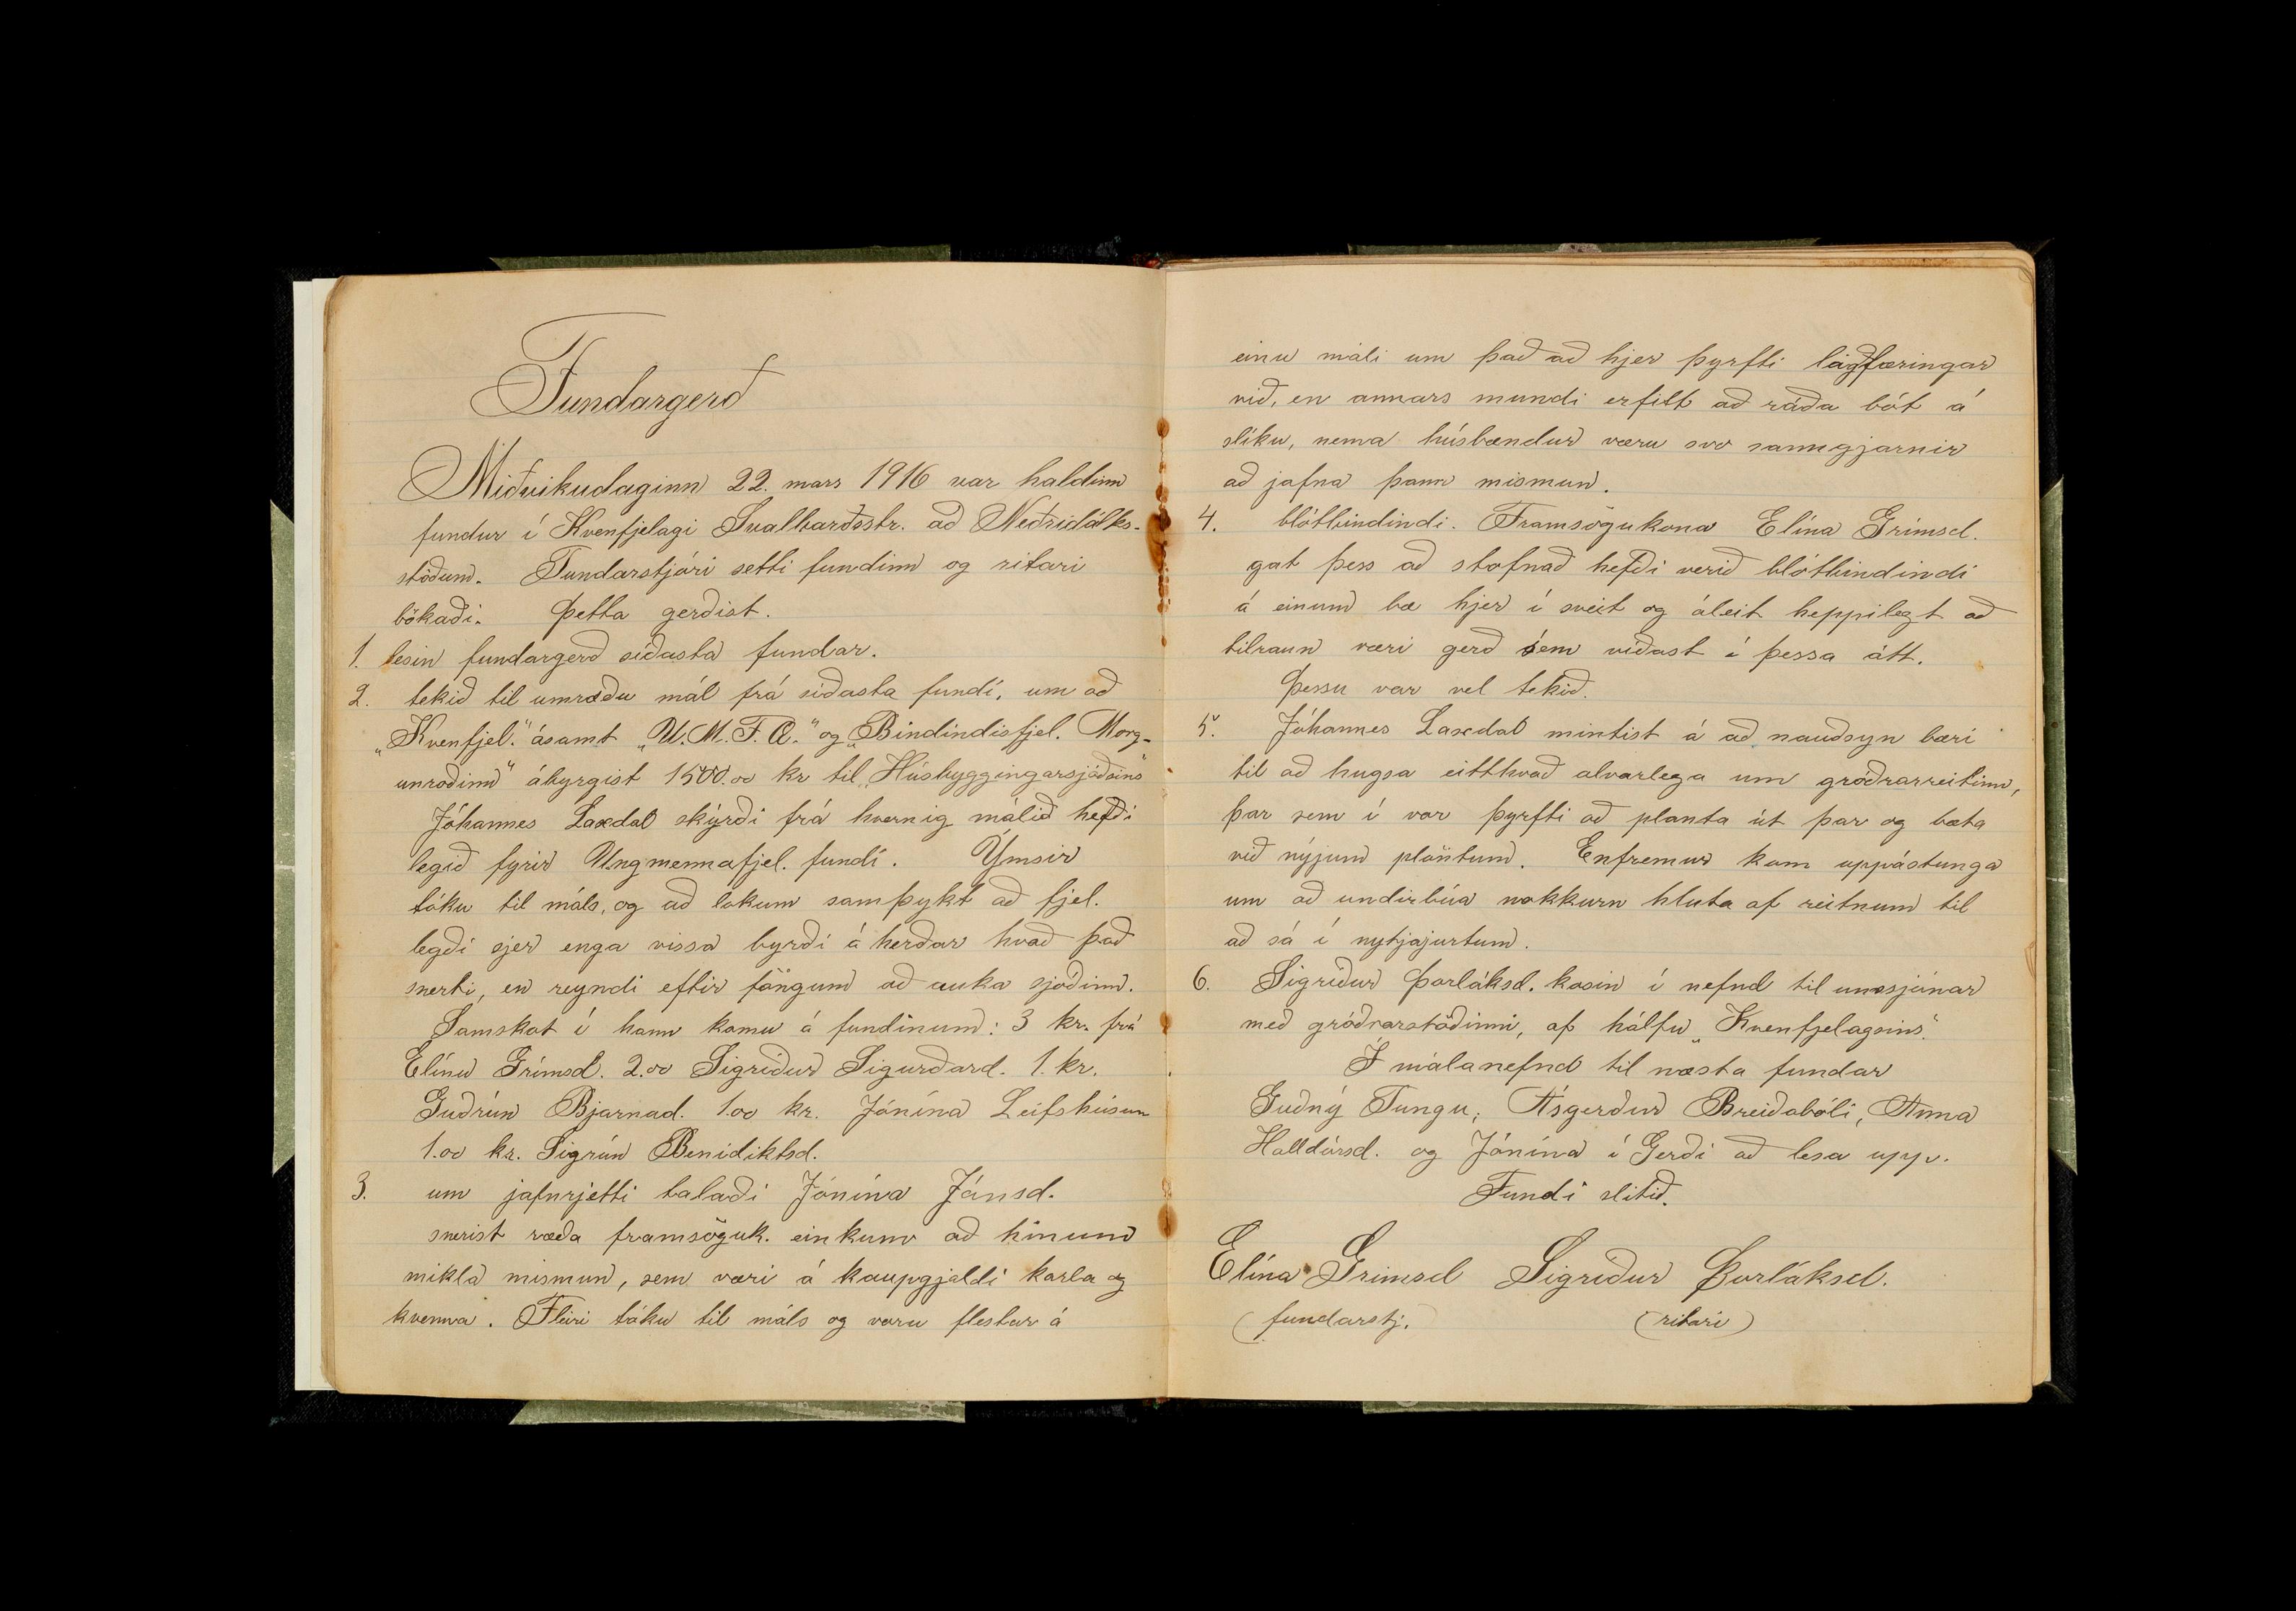 Fundargerð
Miðvikudaginn 22. mars 1916 var haldinn
fundur í Kvenfjelagi Svalbarðsstr. að Neðridálks-
stöðum. Fundarstjóri setti fundinn og ritari
bókaði. Þetta gerðist.
1. lesin fundargerð síðasta fundar.
2. tekið til umræðu mál frá síðasta fundi, um að
„Kvenfjel.“ ásamt „U.M.F.Æ.“ og „Bindindisfjel. Morg-
unroðinn“ ábyrgist 1500.00 kr til „Húsbyggingarsjóðsins“
Jóhannes Laxdal skýrði frá hvernig málið hefði
legið fyrir Ungmennafjel. fundi. Ýmsir
tóku til máls, og að lokum samþykt að fjel.
legði sjer enga vissa byrði á herðar hvað það
snerti, en reyndi eftir föngum að auka sjóðinn.
Samskot í hann komu á fundinum: 3 kr. frá
Elínu Grímsd. 2.00 Sigríður Sigurðard. 1. kr.
Guðrún Bjarnad. 1.00 kr. Jónína Leifshúsum
1.00 kr. Sigrún Benidiktsd.
3. um jafnrjetti talaði Jónína Jónsd.
snerist ræða framsöguk. einkum að hinum
mikla mismun, sem væri á kaupgjaldi karla og
kvenna. Fleiri tóku til máls og voru flestar á
einu máli um það að hjer þyrfti lagfæringar
við, en annars mundi erfitt að ráða bót á
slíku, nema húsbændur væru svo sanngjarnir
að jafna þann mismun.
4. blótbindindi. Framsögukona Elína Grímsd.
gat þess að stofnað hefði verið blótbindindi
á einum bæ hjer í sveit og áleit heppilegt að
tilraun væri gerð sem víðast í þessa átt.
Þessu var vel tekið.
5. Jóhannes Laxdal mintist á að nauðsyn bæri
til að hugsa eitthvað alvarlega um gróðrarreitinn,
þar sem í vor þyrfti að planta út þar og bæta
við nýjum plöntum. Enfremur kom uppástunga
um að undirbúa nokkurn hluta af reitnum til
að sá í nytjajurtum.
6. Sigríður Þorláksd. kosin í nefnd til umsjónar
með gróðrarstöðinni, af hálfu „Kvenfjelagsins“.
Í málanefnd til næsta fundar
Guðný Tungu, Ásgerður Breiðabóli, Anna
Halldórsd. og Jónína í Gerði að lesa upp.
Fundi slitið.
Elína Grímsd Sigríður Þorláksd.
(fundarstj.) (ritari)